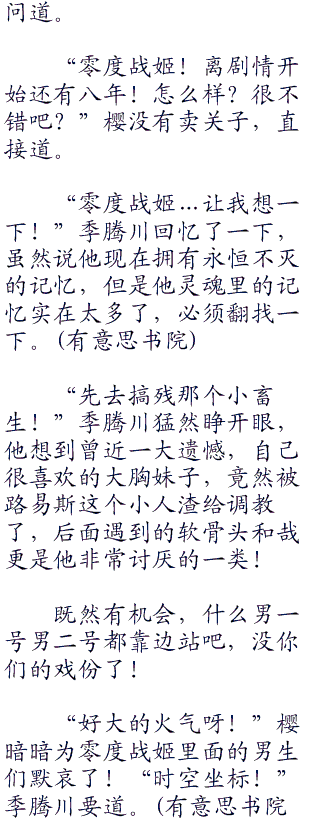 问道。
“零度战姬！离剧情开
始还有八年！怎么样？很不
错吧？”樱没有卖关子，直
接道。
“零度战姬…让我想一
下！”季腾川回忆了一下，
虽然说他现在拥有永恒不灭
的记忆，但是他灵魂里的记
忆实在太多了，必须翻找一
下。(有意思书院)
“先去搞残那个小畜
生！”季腾川猛然睁开眼，
他想到曾近一大遗憾，自己
很喜欢的大胸妹子，竟然被
路易斯这个小人渣给调教
了，后面遇到的软骨头和哉
更是他非常讨厌的一类！
既然有机会，什么男一
号男二号都靠边站吧，没你
们的戏份了！
“好大的火气呀！”樱
暗暗为零度战姬里面的男生
们默哀了！“时空坐标！”
季腾川要道。(有意思书院